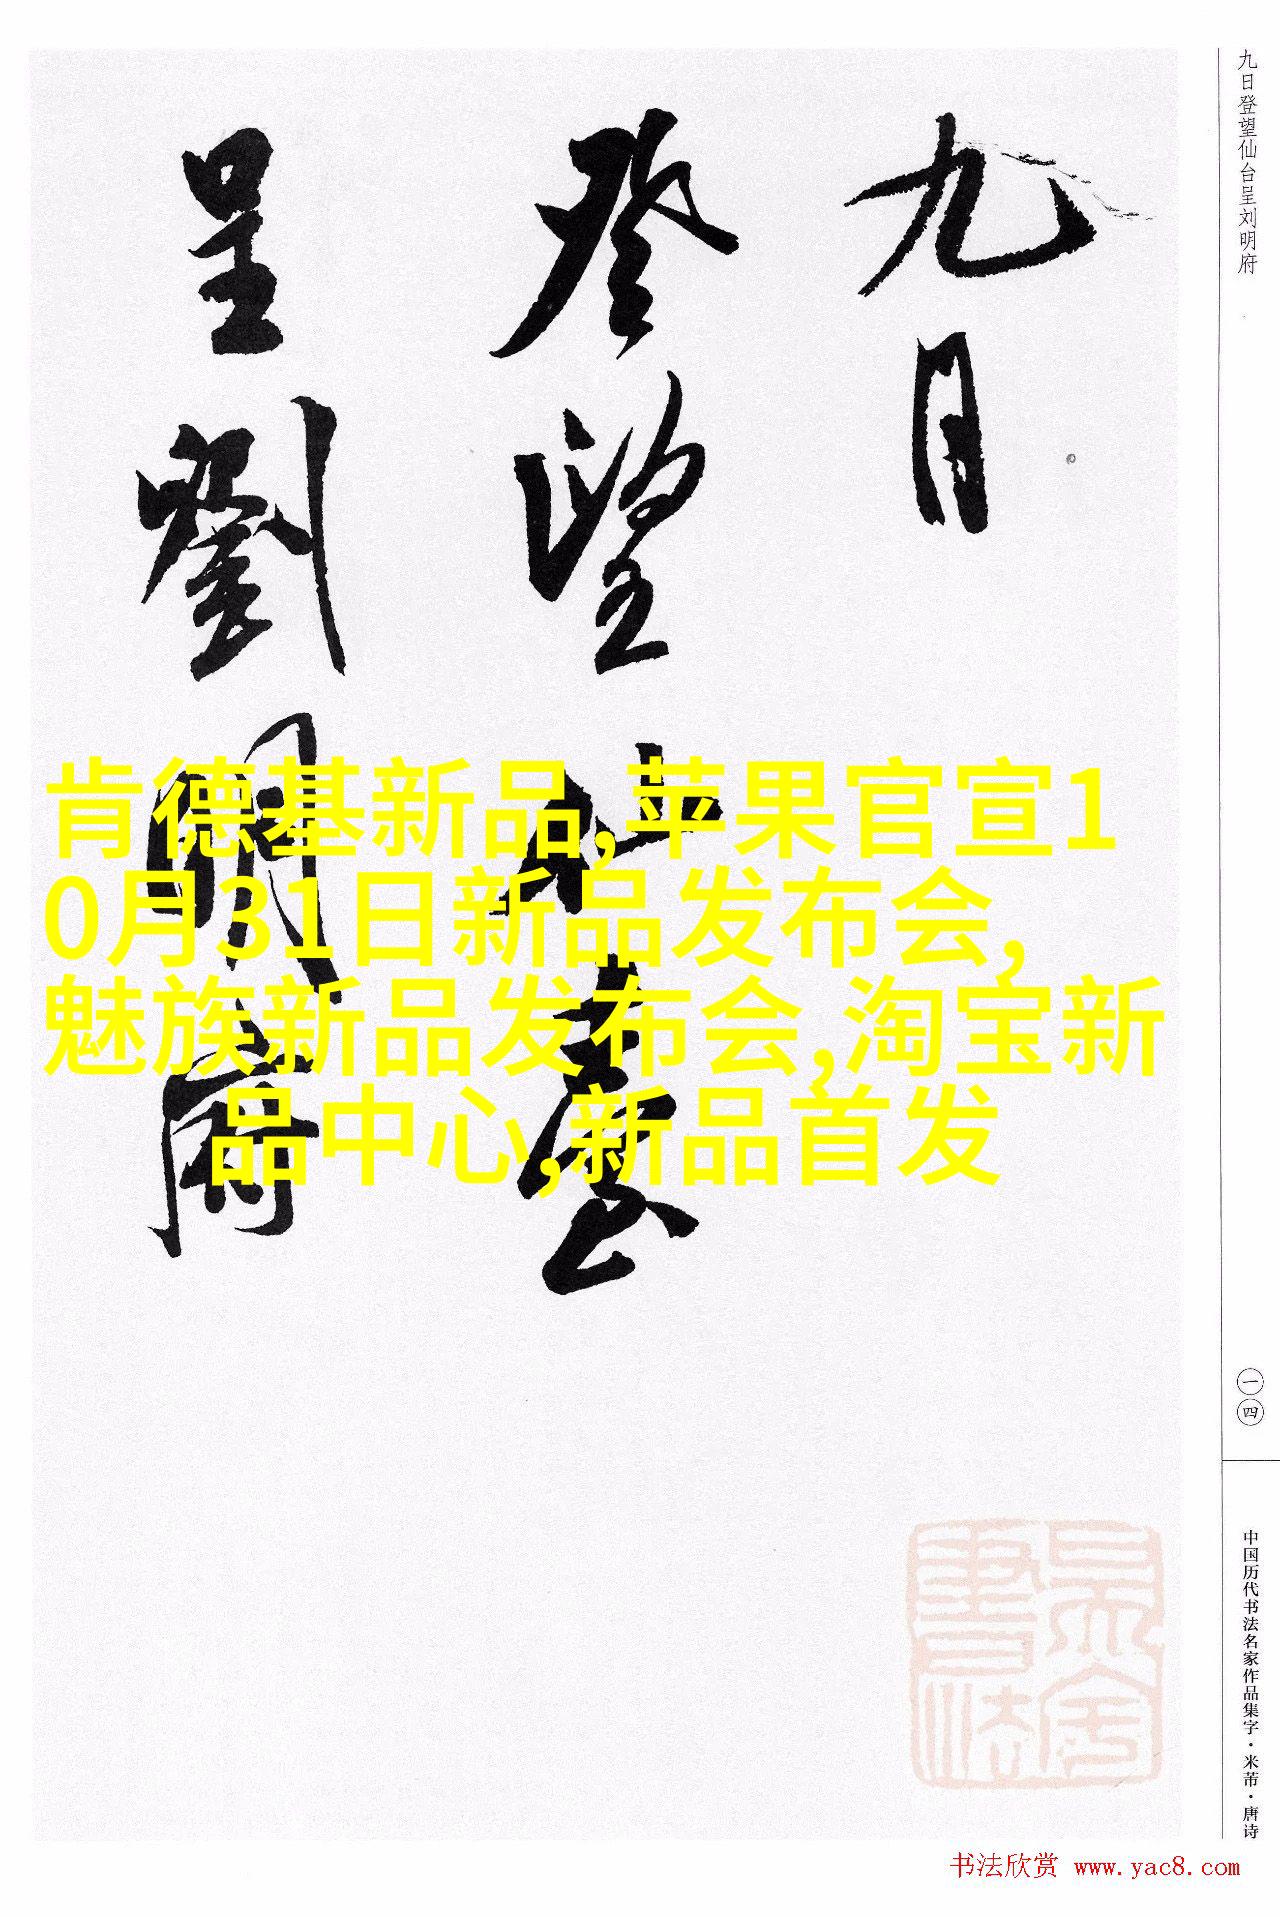 九日登望仙台呈刘明府
九日
登望仙臺
呈劉明府
肯德基新品,苹果官宣1
0月31日新品发布会,
魅族新品发布会,淘宝新
品中心,新品首发
一四
中国历代书法名家作品集字·米芾·唐诗
书法欣赏 www.yac8.com